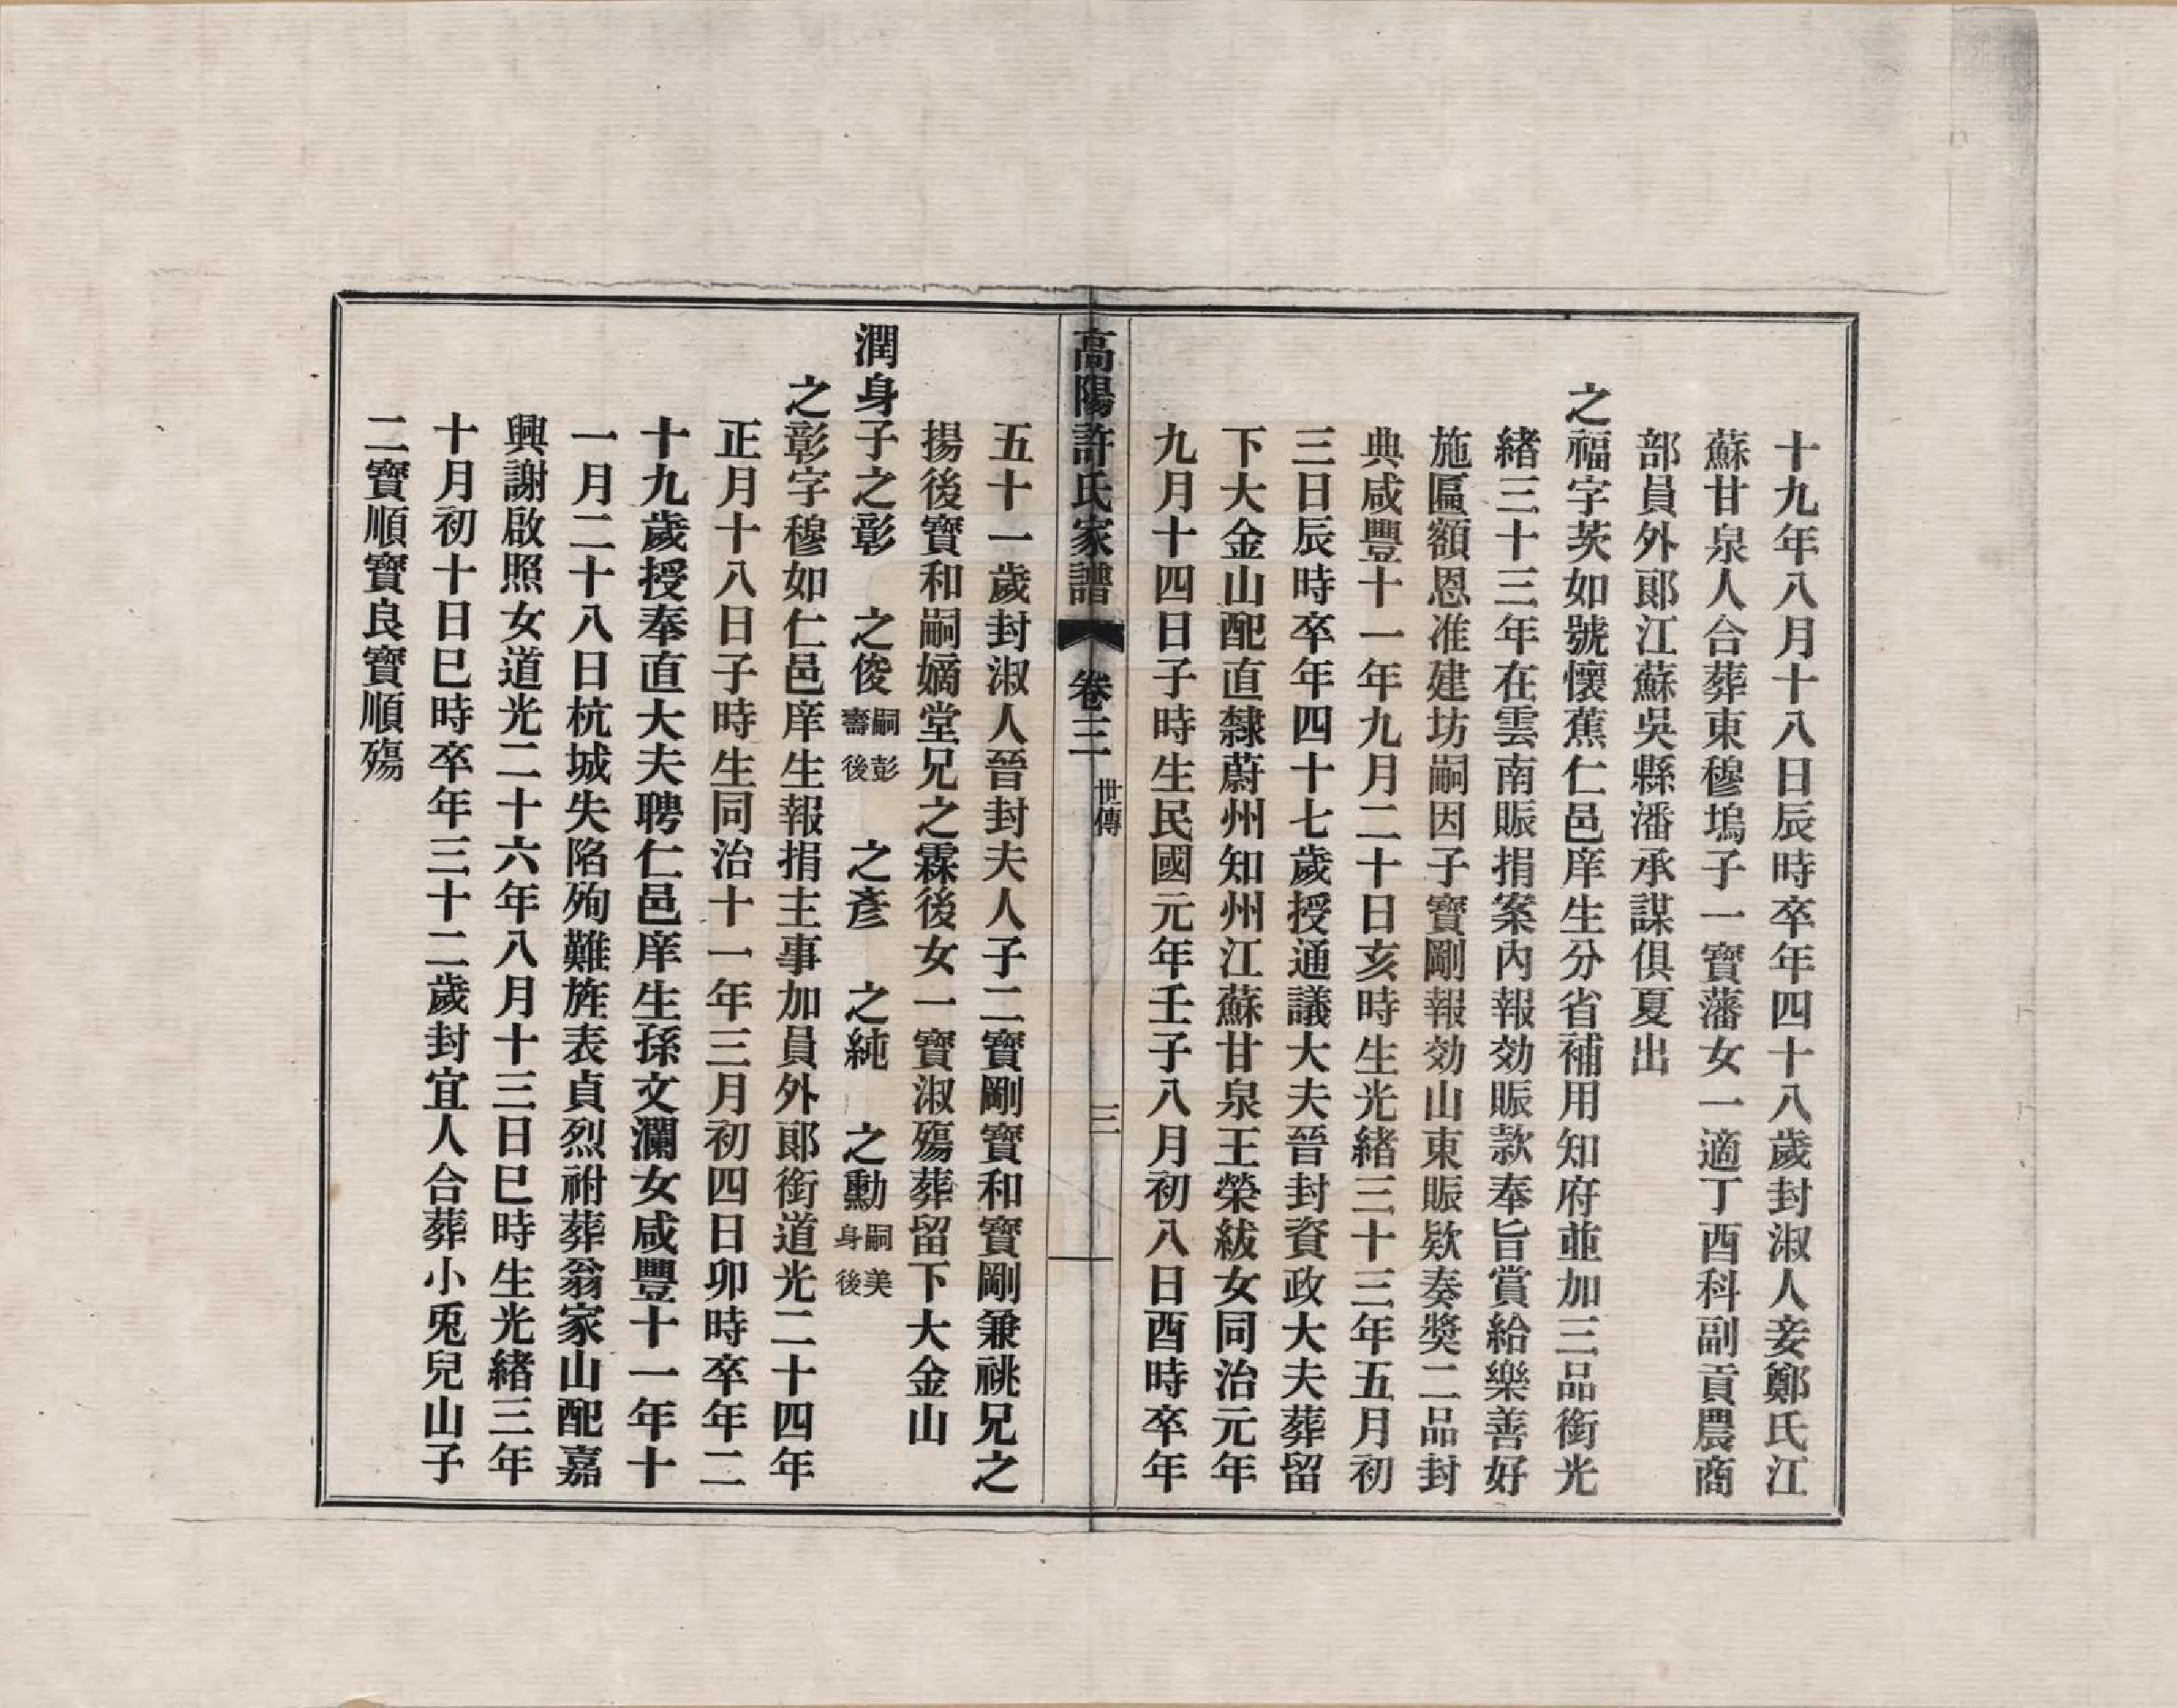 十九年八月十八日辰時卒年四十八歲封淑人妾鄭氏江
蘇甘泉人合葬東穆塢子一寶藩女一適丁酉科副貢農商
部員外郎江蘇吳縣潘承謀俱夏出
之福字茨如號懷蕉仁邑庠生分省補用知府並加三品銜光
緒三十三年在雲南賑捐案內報効賑款奉旨賞給樂善好
施匾額恩准建坊嗣因子寶剛報効山東賑欵奏獎二品封
典咸豐十一年九月二十日亥時生光緒三十三年五月初
三日辰時卒年四十七歲授通議大夫晉封資政大夫葬留
下大金山配直隸蔚州知州江蘇甘泉王榮紱女同治元年
九月十四日子時生民國元年壬子八月初八日酉時卒年
高陽許氏家譜 卷三 世傳 三
五十一歲封淑人晉封夫人子二寶剛寶和寶剛兼祧兄之
揚後寶和嗣嫡堂兄之霖後女一寶淑殤葬留下大金山
潤身子之彰 之俊嗣彭壽後 之彥 之純 之勳嗣美身後
之彰字穆如仁邑庠生報捐主事加員外郎銜道光二十四年
正月十八日子時生同治十一年三月初四日卯時卒年二
十九歲授奉直大夫聘仁邑庠生孫文瀾女咸豐十一年十
一月二十八日杭城失陷殉難旌表貞烈祔葬翁家山配嘉
興謝啟照女道光二十六年八月十三日巳時生光緒三年
十月初十日巳時卒年三十二歲封宜人合葬小兎兒山子
二寶順寶良寶順殤